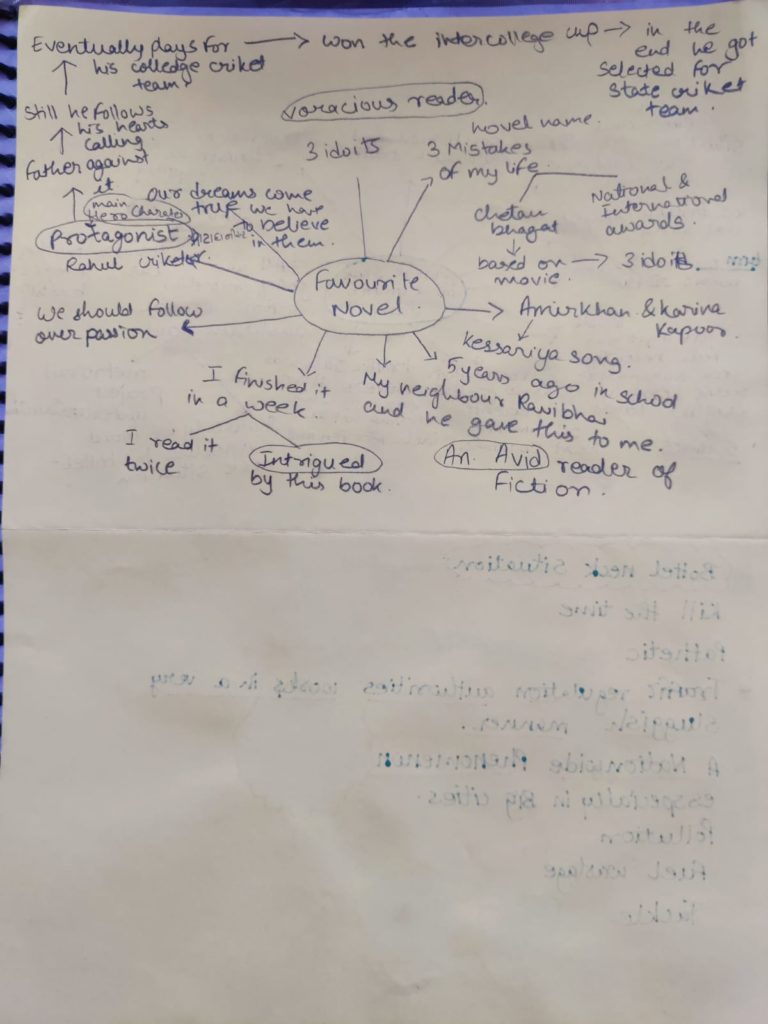 Eventually plays for → won the intercollege cup → in the
his colledge criket
team.
end he got
selected for
State criket
team.
Still he follows
his hearts
calling
Father against
it
voracious reader
3 idoits
novel name.
3 Mistakes
of my life
chetan
bhagat
National &
International
awards.
based on → 3 idoits
movie.
main
Hero Charater
our dreams come
true we have
to believe
in them.
Protagonist
Rahul criketer
Favourite
Novel
We should follow
over passion
Amirkhan & karina
Kapoor
kessariya song.
5 years ago in school
My neighbour Ravibhai
and he gave this to me.
I finished it
in a week.
I read it
twice
Intrigued
by this book.
An Avid reader of
Fiction.
Bottel neck Situation
kill the time
Pathetic
Traffic regulation authorities works in a very
sluggish manner.
A Nationwide Phenomenon
especially in Big cities.
Pollution
fuel wastage
tackle